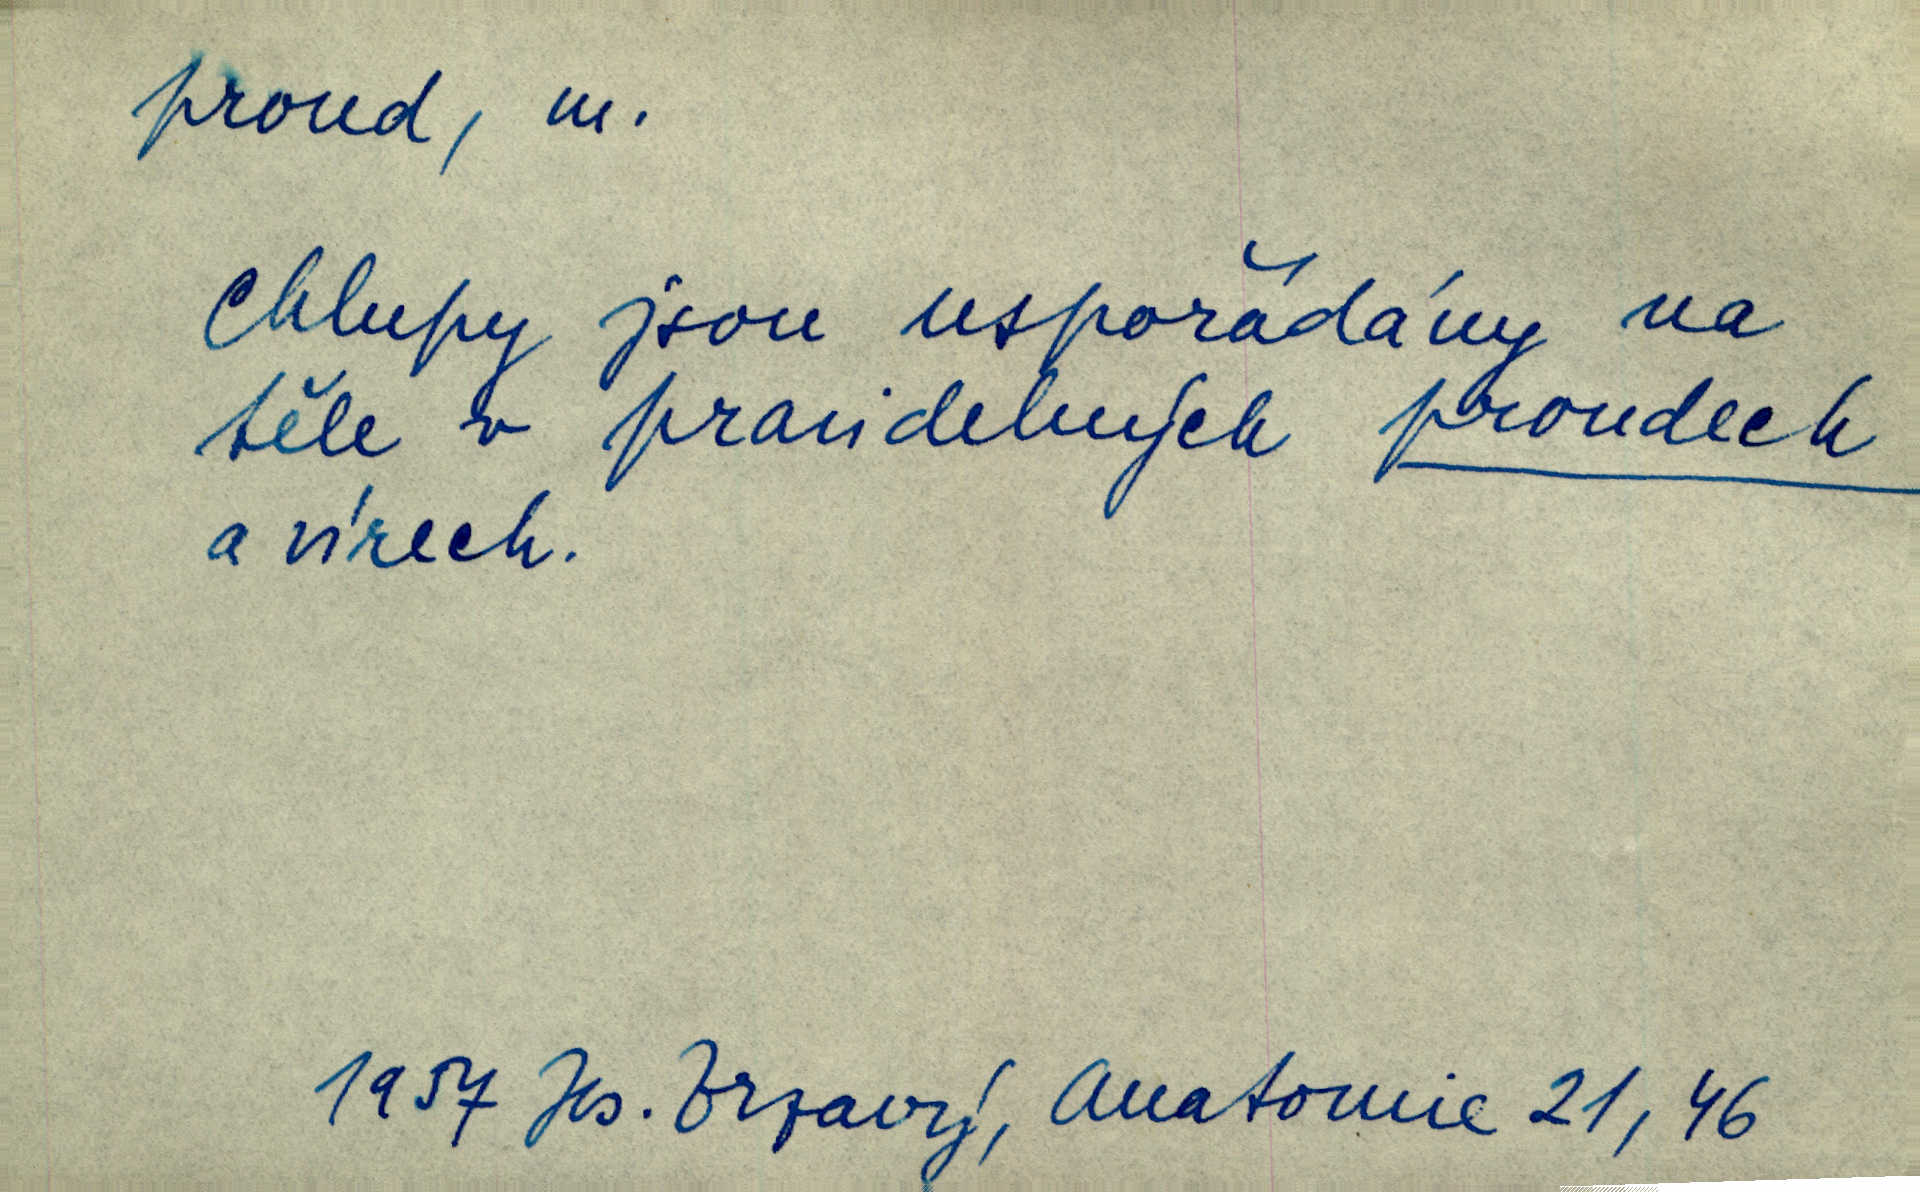 proud, m.
Chlupy jsou uspořádány na
těle v pravidelných proudech
a vírech.
1957 Jos. Brzavý, Anatomie 21, 46